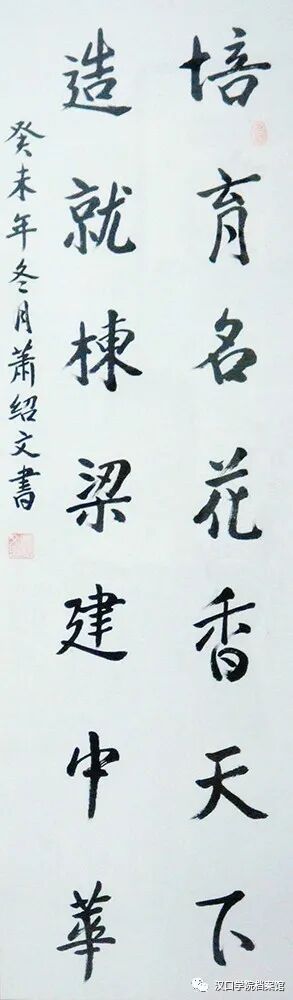 培育名花香天下
造就棟梁建中華
癸未年冬月萧绍文書
汉口学院档案馆